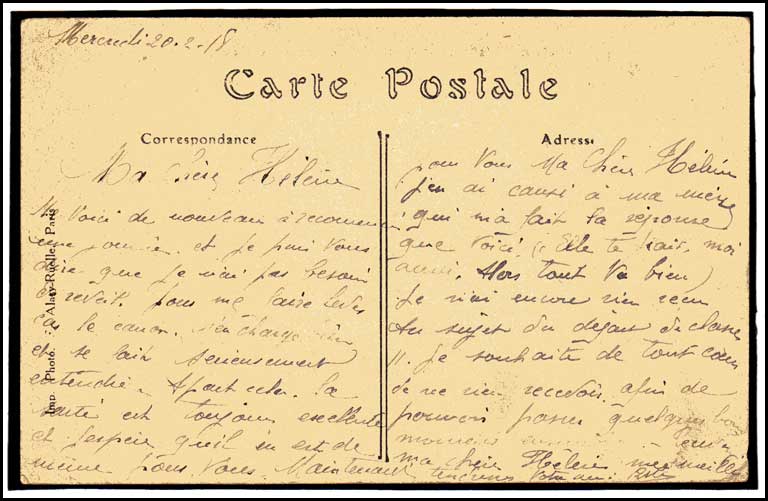 Mercredi 20-2-18
Carte Postale
Correspondance
Ma Chère Hélène
Me Voici de nouveau à recommencer
une journée. et je puis Vous
dire que je n'ai pas besoin
de réveil. pour me faire lever
car le canon s'en charge bien
et se fait sérieusement
entendre. Apart cela. la
santé est toujours excellente
et j'espère qu'il en est de
même pour Vous Maintenant
Imp. Photo. A. Alary-Ruelle, Paris
Adresse
pour Vous Ma Chère Hélène
j'en ai causé à ma mère
qui m'a fait la réponse
que Voici (Elle te plait, moi
aussi. Alors tout Va bien)
Je n'ai encore rien reçu
Au sujet du départ du classe
11. Je souhaite de tout cœur
de ne rien recevoir afin de
pouvoir passer quelques bons
moments
ma chère Hélène mes meilleurs
Votre ami